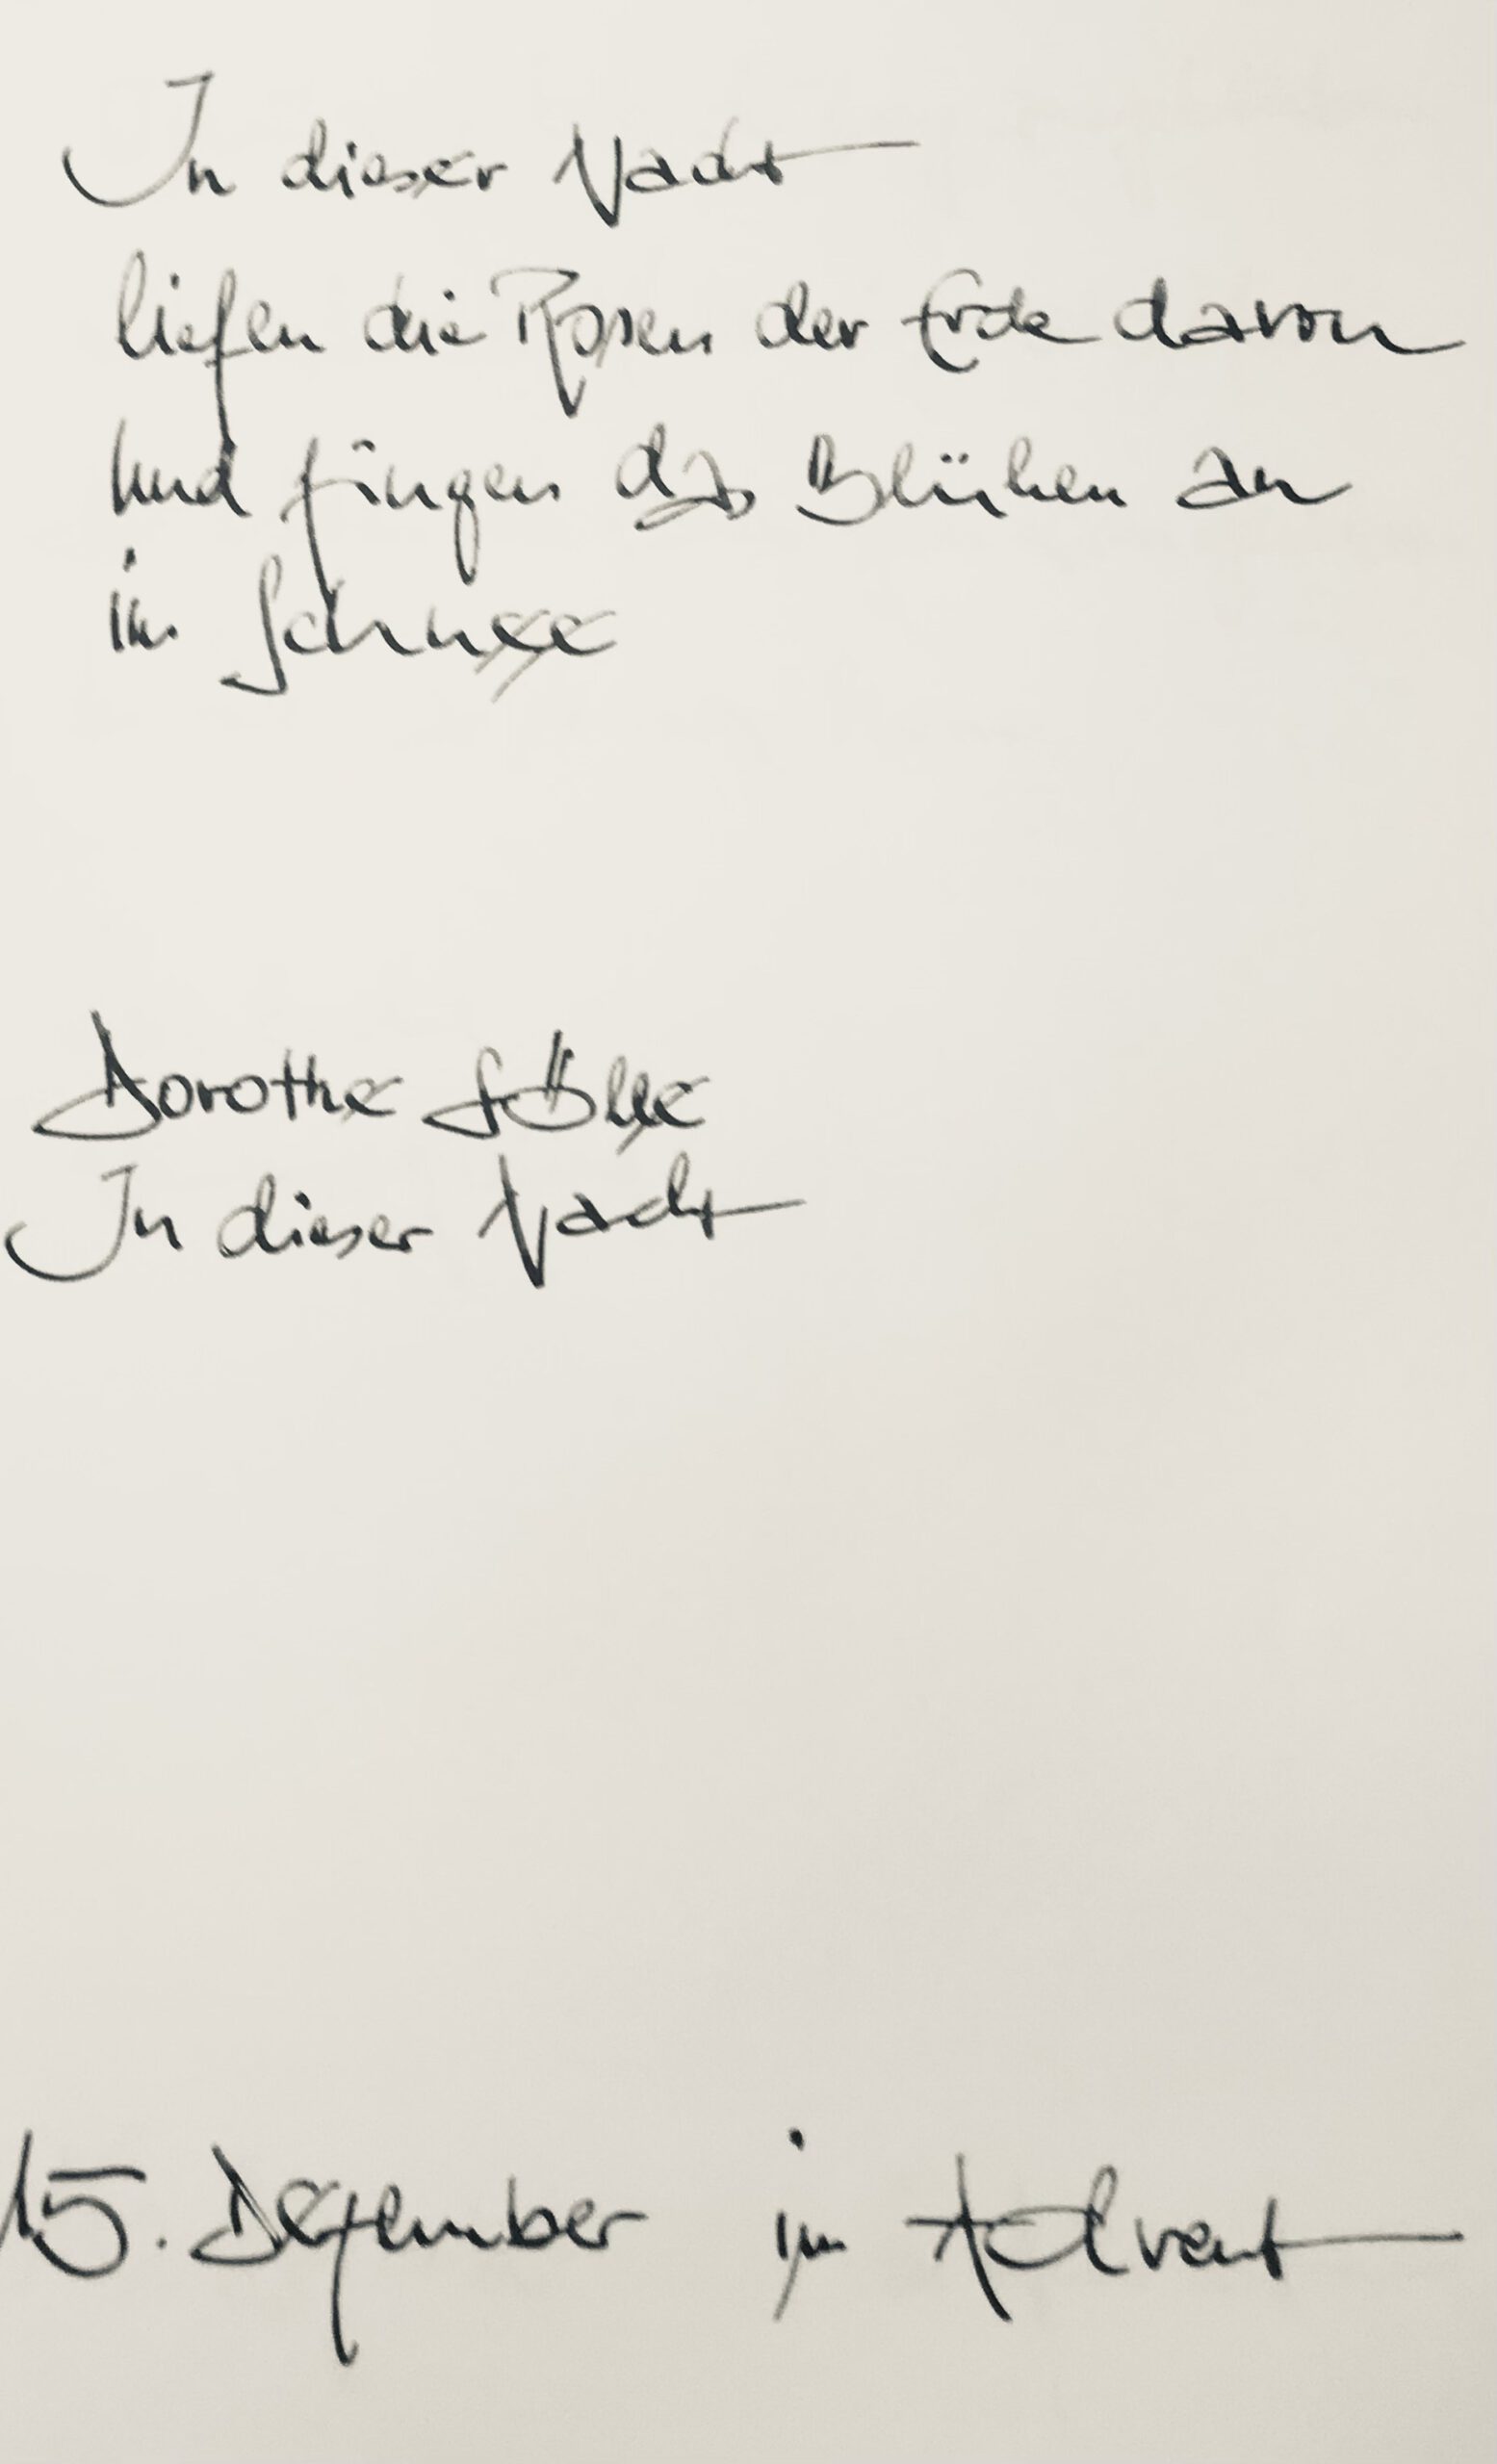 In dieser Nacht
liefen die Rosen der Erde davon
und fingen das Blühen an
im Schnee
Dorothe Sölle
In dieser Nacht
15. Dezember im Advent